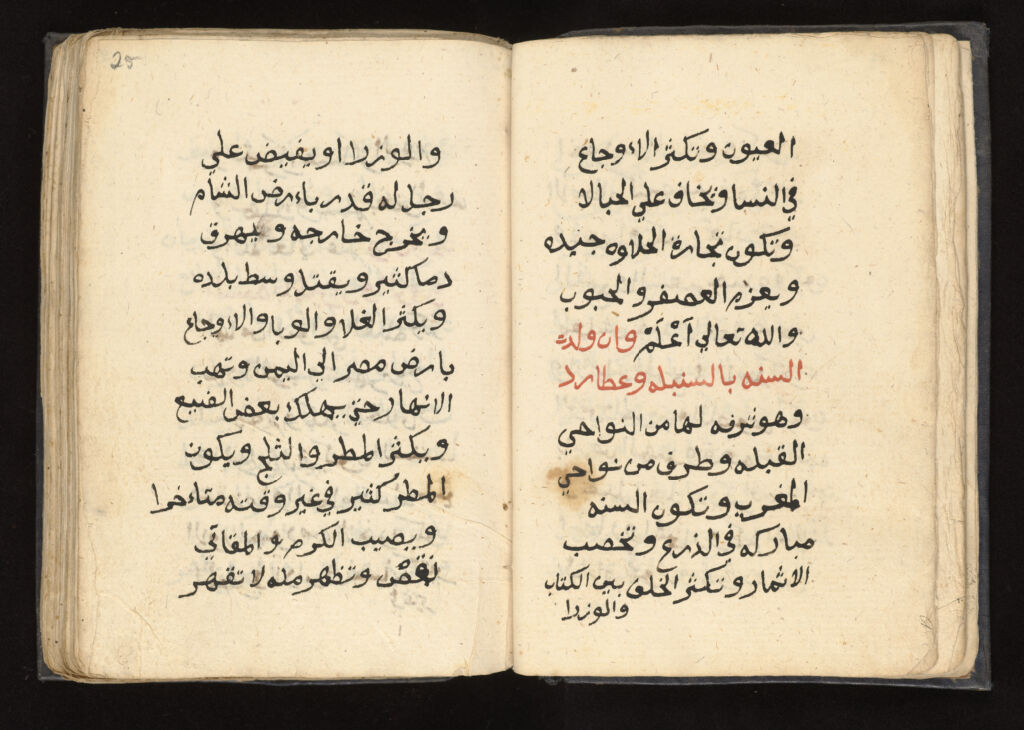 العيون وتكثر الاءوجاع
في النسا ويخاف علي الحبالا
وتكون تجارة الحلاوه جيده
ويعزم العصفر والحبوب
والله تعالي اَعْلَمْ وان ولدت
السنه بالسنبله وعطارد
وهو ترفه لها من النواحي
القبله وطرف من نواحي
المغرب وتكون السنه
مباركه في الذرع وتخصب
الاثمار وتكثر الخلق بين الكتاب
والوزرا
25
والوزرا او يفيض علي
رجل له قدر باءرض الشام
ويخرج خارجه ويهرق
دما كثير ويقتل وسط بلده
ويكثر الغلا والوبا والاءوجاع
بارض مصر الي اليمن وتهب
الانهار حتي يهلك بعض الضيع
ويكثر المطر والثلج ويكون
المطر كثير في غير وقته متاءخرا
ويصيب الكرم والمقاتي
نقصْ وتظهر مله لا تقهر